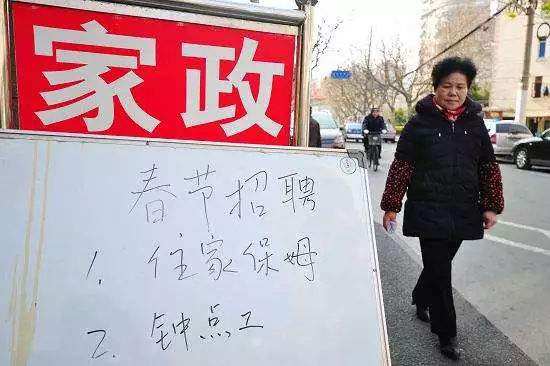 家政
春节招聘
1. 住家保姆
2. 钟点工